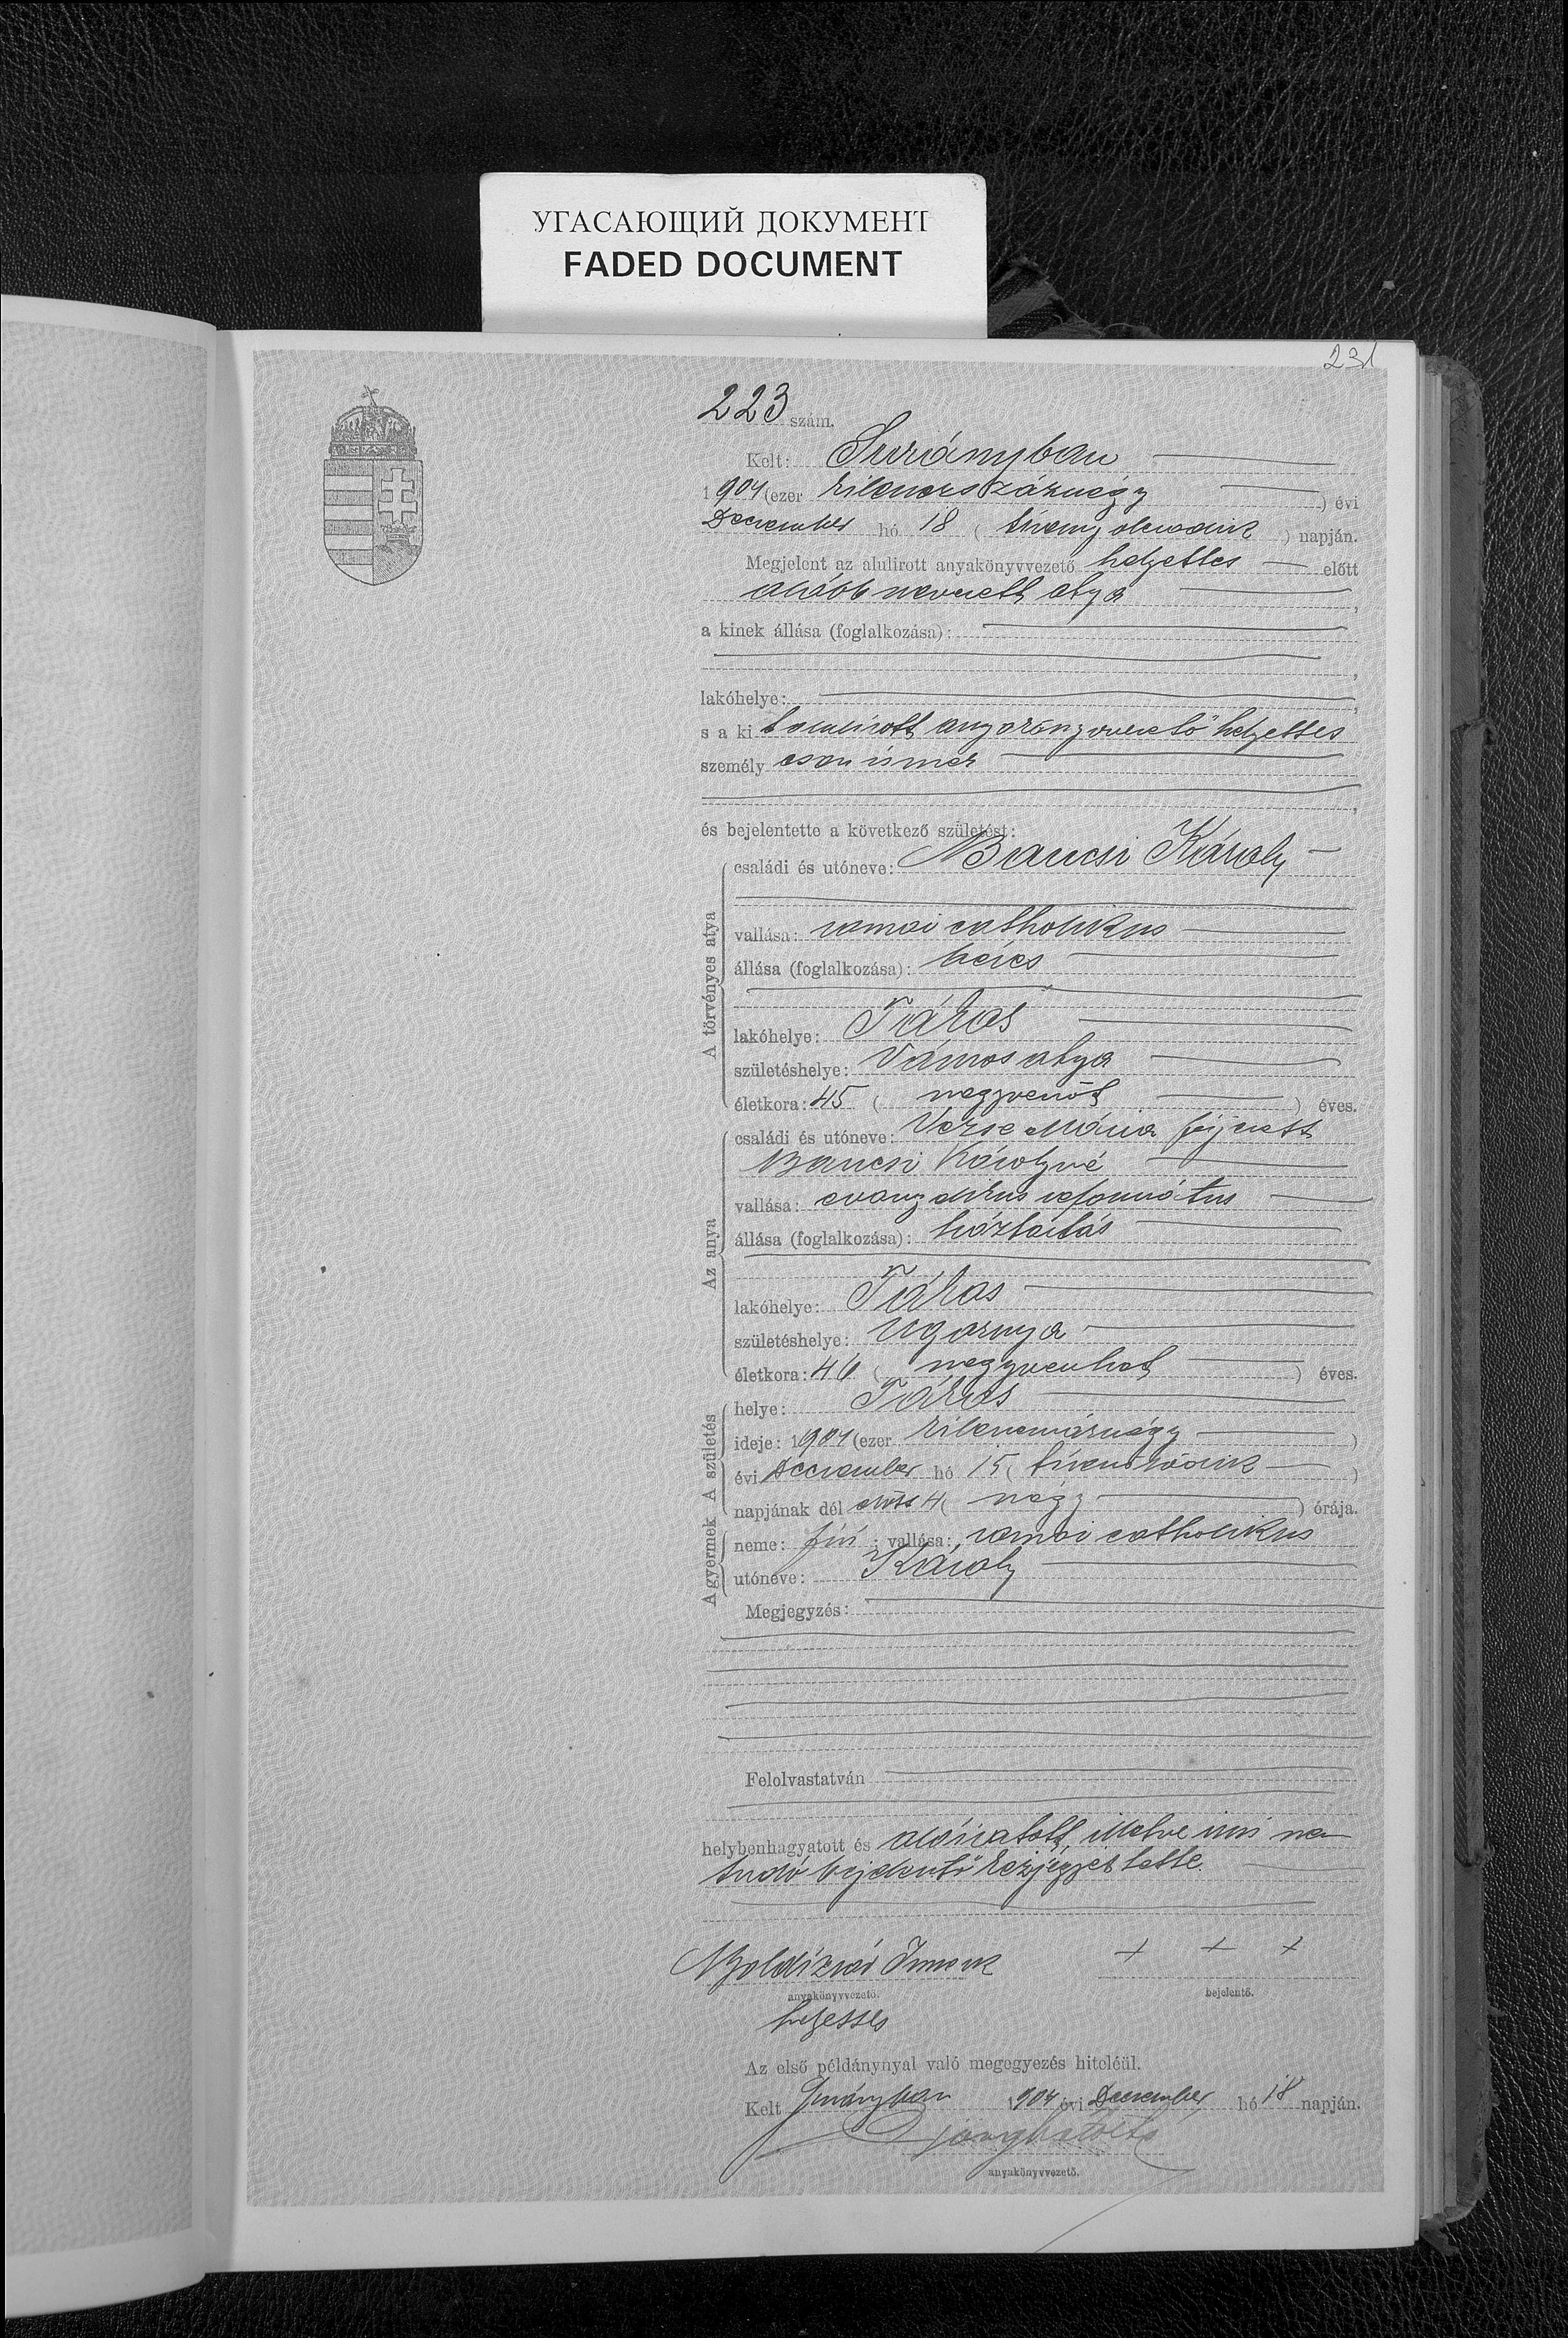 УГАСАЮЩИЙ ДОКУМЕНТ
FADED DOCUMENT
231
223 szám.
Kelt: Surányban
1904 (ezer kilenczszáznégy) évi
December hó 18 (tizennyolczadik) napján.
Megjelent az alulirott anyakönyvvezető helyettes előtt
alább nevezett atya,
a kinek állása (foglalkozása):
lakóhelye:
s a ki t alulirott anyakönyvvezető helyettes
személyesen ismer
és bejelentette a következő születést:
A törvényes atya
családi és utóneve: Bancsi Károly
vallása: romai catholikus
állása (foglalkozása): béres
lakóhelye: Tákos
születéshelye: Vámosatya
életkora: 45 (negyvenöt) éves.
Az anya
családi és utóneve: Mária férjezett
Bancsi Károlyné
vallása: evangelikus református
állása (foglalkozása): háztartás
lakóhelye: Tákos
születéshelye: Ugornya
életkora: 46 (negyvenhat) éves.
A születés
helye: Tákos
ideje: 1904 (ezer kilenczszáznégy)
évi December hó 15 (tizenötödik)
napjának dél előtt 4 (négy) órája.
A gyermek
neme: fiú; vallása: romai catholikus
utóneve: Károly
Megjegyzés:
Felolvastatván
helybenhagyatott és aláiratott, illetve irni nem
tudó bejelentő kézjegyét tette.
+ + +
anyakönyvvezető. bejelentő.
helyettes
Az első példánynyal való megegyezés hiteléül.
Kelt Surányban 1904 évi December hó 18 napján.
anyakönyvvezető.